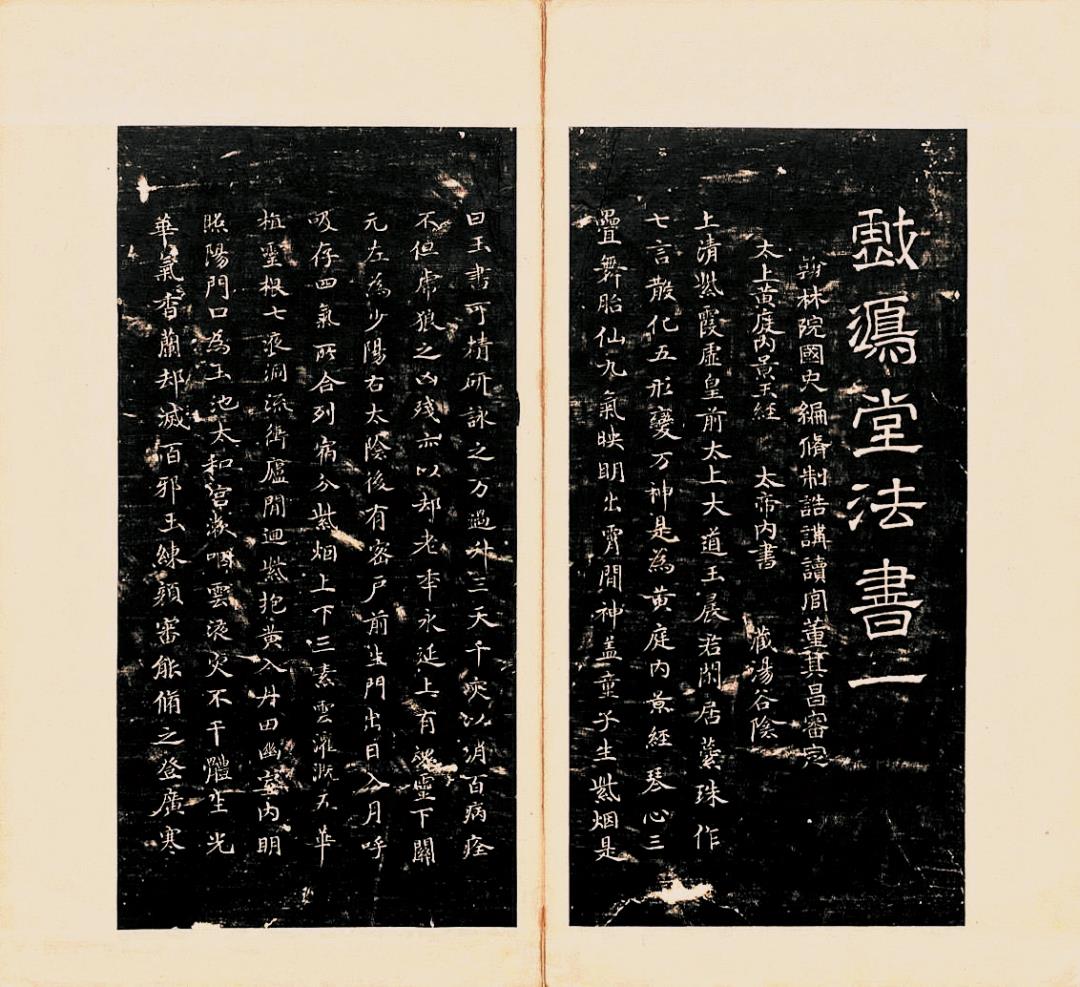 戲鴻堂法書二
翰林院國史編脩制誥講讀官董其昌審定
太上黃庭內景玉經 太帝內書 藏湯谷陰
上清紫霞虛皇前太上大道玉晨君閑居蘂珠作
七言散化五形變万神是為黃庭內景經琴心三
疊舞胎仙九氣映明出霄閒神盖童子生紫烟是
曰玉書可精研詠之万過升三天千灾以消百病痊
不但虎狼之凶殘亦以却老年永延上有魂靈下關
元左為少陽右太陰後有密戶前生門出日入月呼
吸存四氣所合列宿分紫烟上下三素雲灌溉五華
植靈根七液洞流衝廬閒迴紫抱黃入丹田幽室內明
照陽門口為玉池太和宮漱咽靈液灾不干體生光
華氣香蘭却滅百邪玉練顏審能脩之登廣寒